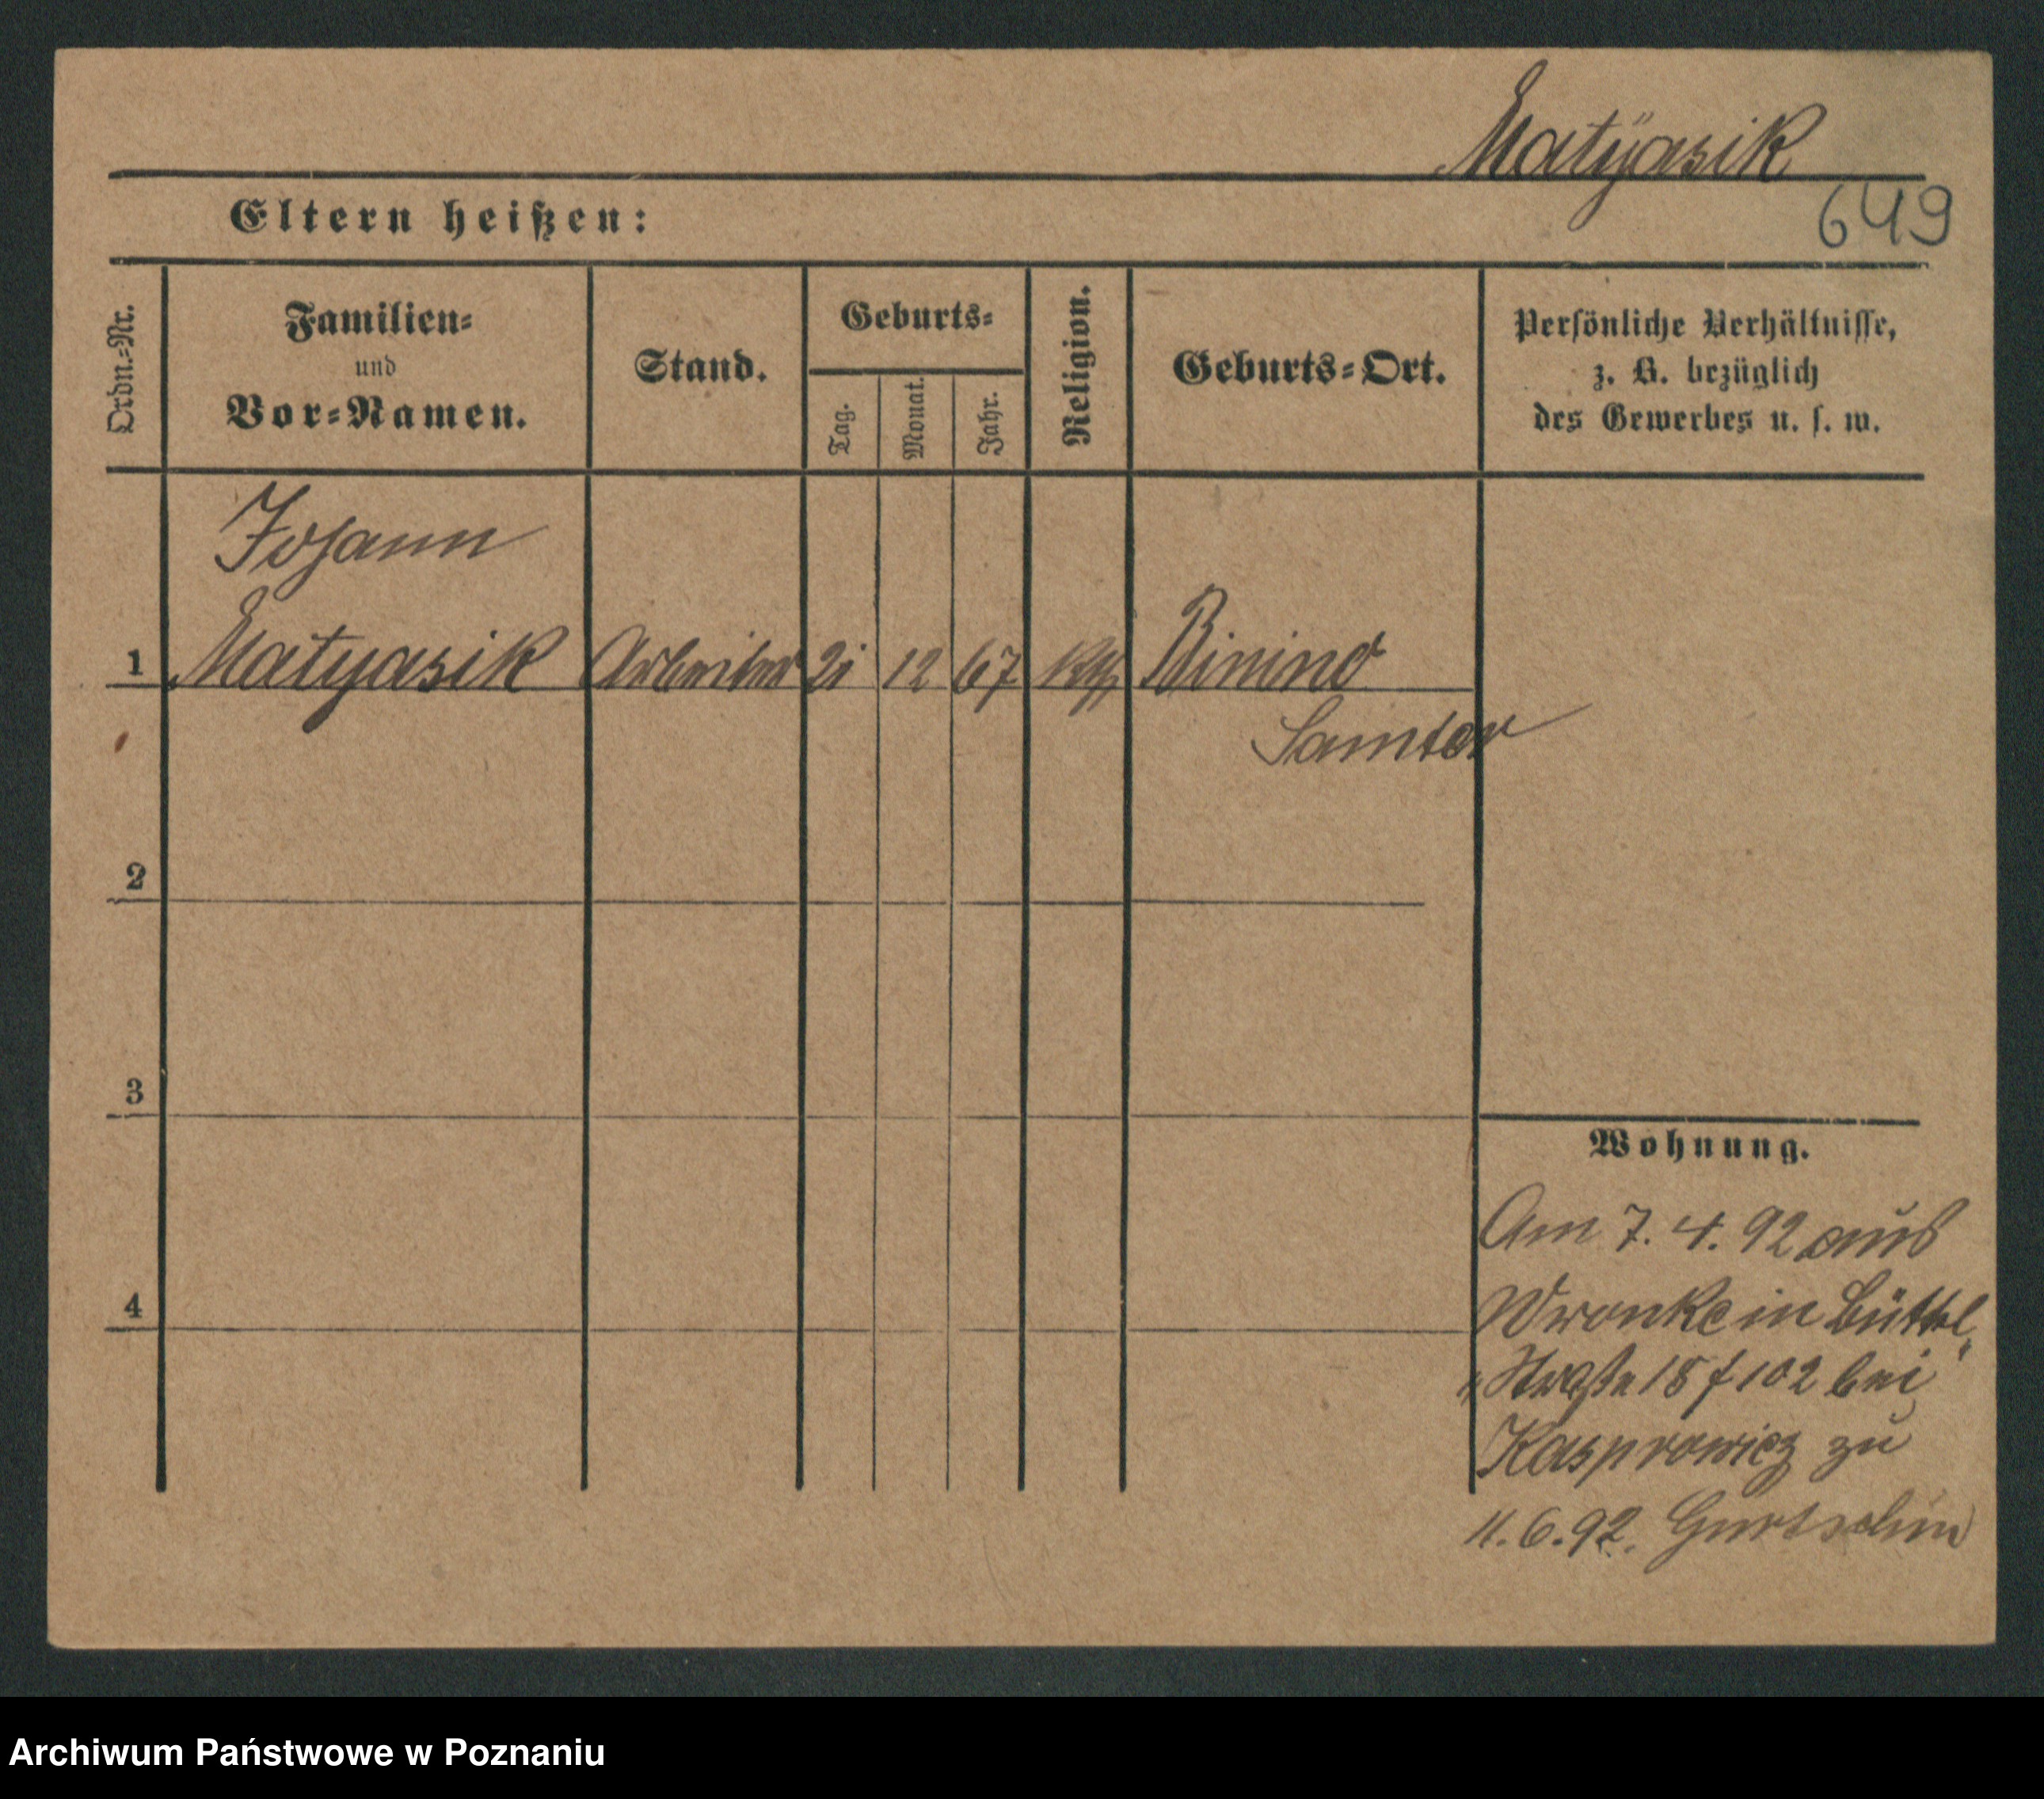 Matÿasik
649
Eltern heißen:
Ordn.-Nr.
Familien-
und
Vor-Namen.
Stand.
Geburts-
Tag.
Monat.
Jahr.
Religion.
Geburts-Ort.
Persönliche Verhältnisse,
z. B. bezüglich
des Gewerbes u. s. w.
Johann
1 Matyasik Arbeiter 21 12 67 Kth Binino
Samter
2
3
4
Wohnung.
Am 7. 4. 92 aus
Wronke in Büttel
Straße 18 f 102 bei
Kasprowicz zu
11. 6. 92. Gurtschin
Archiwum Państwowe w Poznaniu